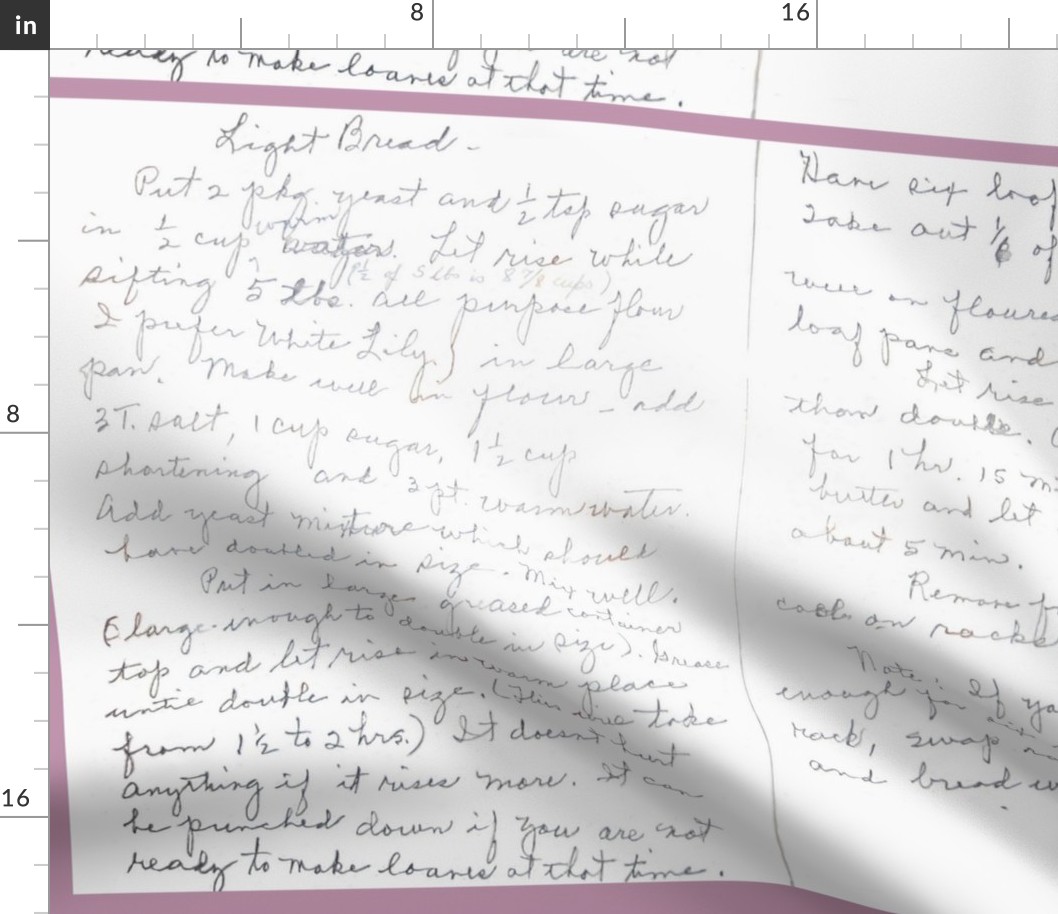 in
8
16
8
16
ready to make loaves at that time.
Light Bread -
Put 2 pkg. yeast and ½ tsp sugar
in ½ cup warm water. Let rise while
(½ of 5 lbs is 8 7/8 cups)
sifting 5 lbs. all purpose flour
I prefer White Lily} in large
pan. Make well in flour - add
3 T. salt, 1 cup sugar, 1½ cup
shortening and 3 pt. warm water.
Add yeast mixture which should
have doubled in size. Mix well.
Put in large greased container
(large enough to double in size). Grease
top and let rise in warm place
until double in size. (This will take
from 1½ to 2 hrs.) It doesn't hurt
anything if it rises more. It can
be punched down if you are not
ready to make loaves at that time.
Have six loaf
Take out 1/6 of
well on floured
loaf pans and
Let rise
than double.
for 1 hr. 15
butter and let
about 5 min.
Remove
cool on racks
Note: If
enough for
rack, swap
and bread